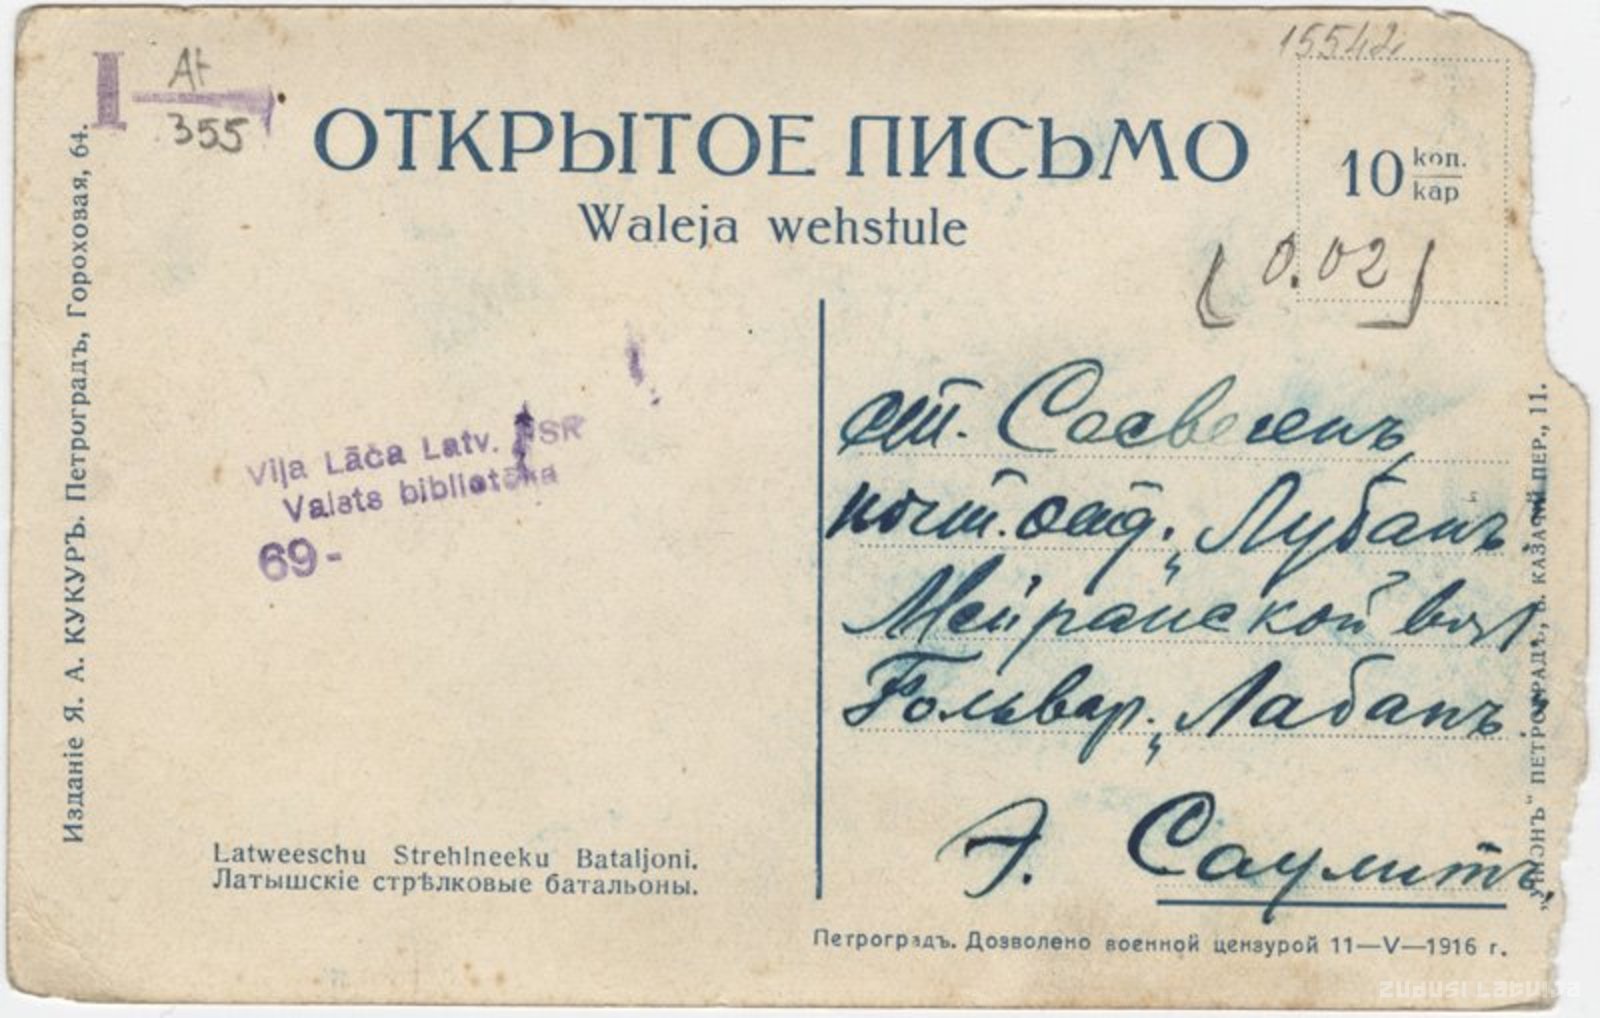 15542
I А+
355
ОТКРЫТОЕ ПИСЬМО
Waleja wehstule
10 коп.
kap
[0.02]
Издание Я. А. КУКУРЪ. Петроградъ, Гороховая, 64.
Viļa Lāča Latv. PSR
Valsts bibliotēka
69-
ст.
почт. отд. „Лубанъ"
Мейранской вол.
Фольвар. „Лабанъ"
Э. Саулитъ.
Latweeschu Strehlneeku Bataljoni.
Латышскіе стрѣлковые батальоны.
Петроградъ. Дозволено военной цензурой 11—V—1916 г.
„УНІОНЪ“ ПЕТРОГРАДЪ, Б. КАЗАЧІЙ ПЕР., 11.
ZUDUSI LATVIJA